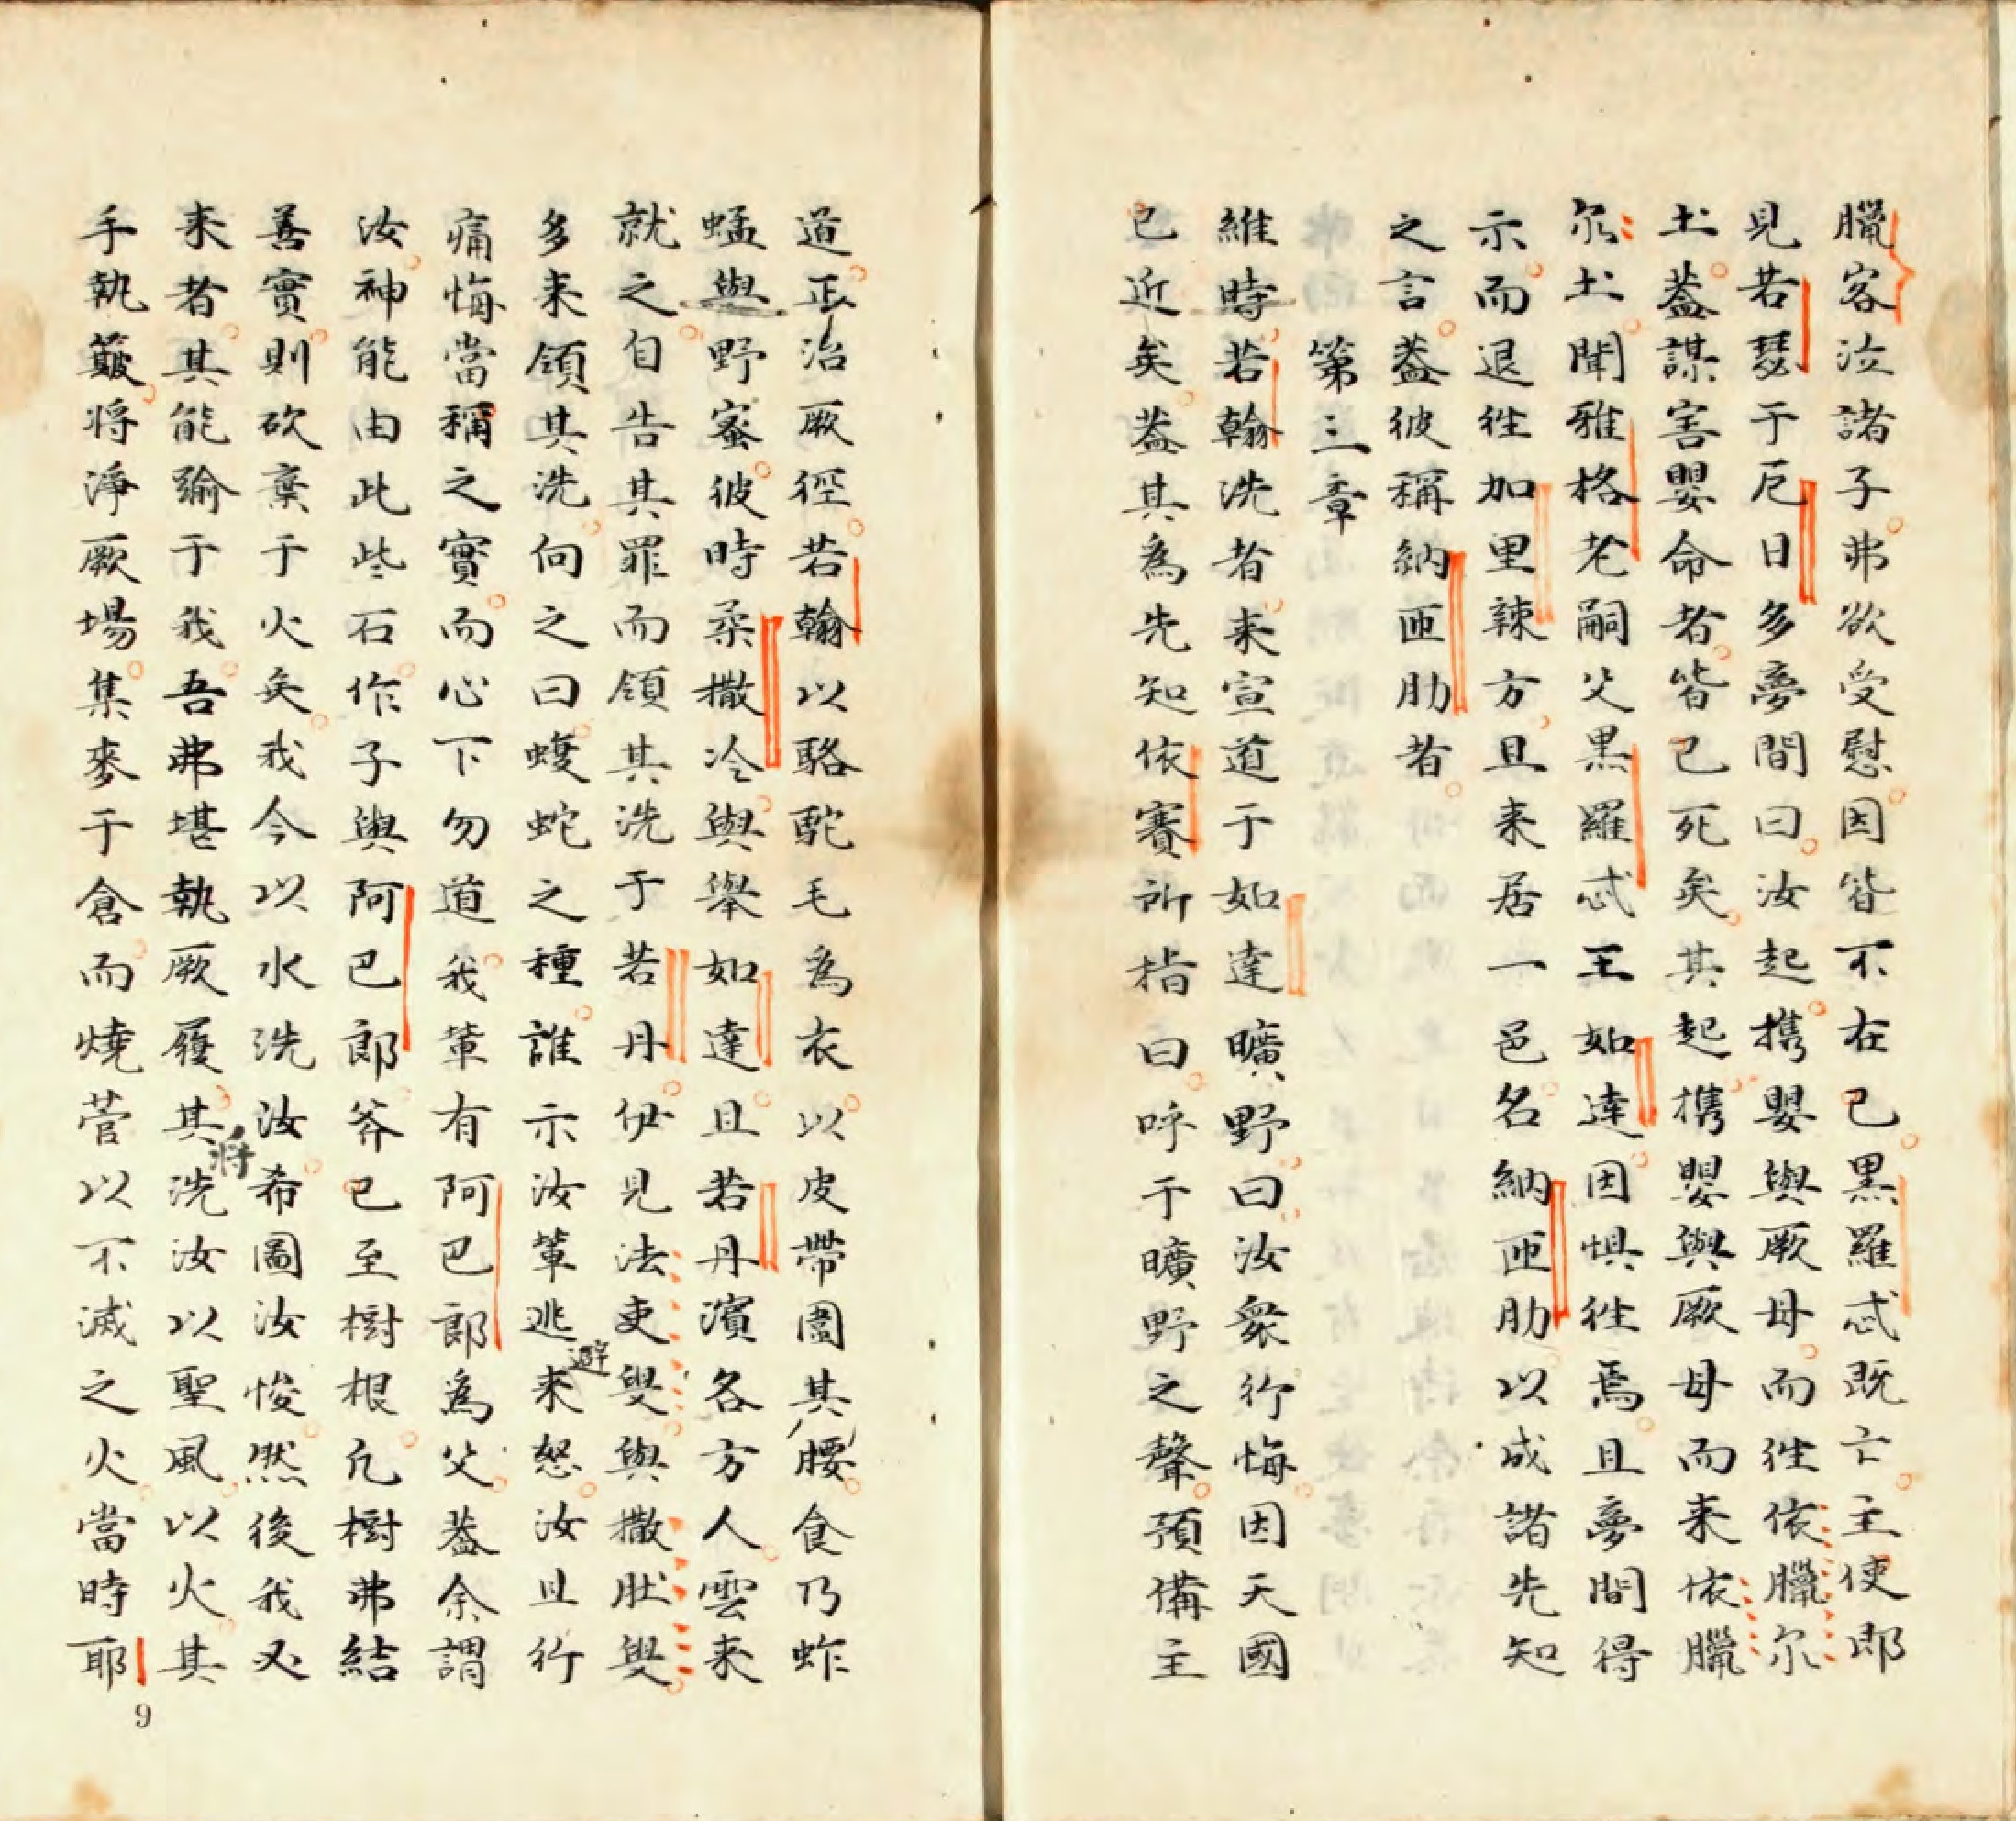 臘客泣諸子弗欲受慰因皆不在已黒羅忒既亡主使即
見若瑟于厄日多夢間曰汝起携嬰與厥母而徃依臘尔
土葢謀害嬰命者皆已死矣其起携嬰與厥母而来依臘
尔土聞雅格老嗣父黒羅忒王如達因惧徃焉且夢間得
示而退徃加里辣方且来居一邑名納匝肋以成諸先知
之言葢彼稱納匝肋者
第三章
維時若翰洗者来宣道于如達曠野曰汝衆行悔因天國
已近矣葢其為先知依賽所指曰呼于曠野之聲預備主
道正治厥徑若翰以駱駝毛為衣以皮帶圍其腰食乃蚱
蜢與野蜜彼時柔撒冷與舉如達且若丹濱各方人雲来
就之自告其罪而領其洗于若丹伊見法吏叟與撒肚叟
多来領其洗向之曰蝮蛇之種誰示汝軰逃避来怒汝且行
痛悔當稱之實而心下勿道我軰有阿巴郎為父葢余謂
汝神能由此些石作子與阿巴郎斧已至樹根凢樹弗結
善實則砍棄于火矣我今以水洗汝希圖汝悛然後我又
来者其能踰于我吾弗堪執厥履其將洗汝以聖風以火其
手執簸将淨厥場集麥于倉而燒菅以不滅之火當時耶
9